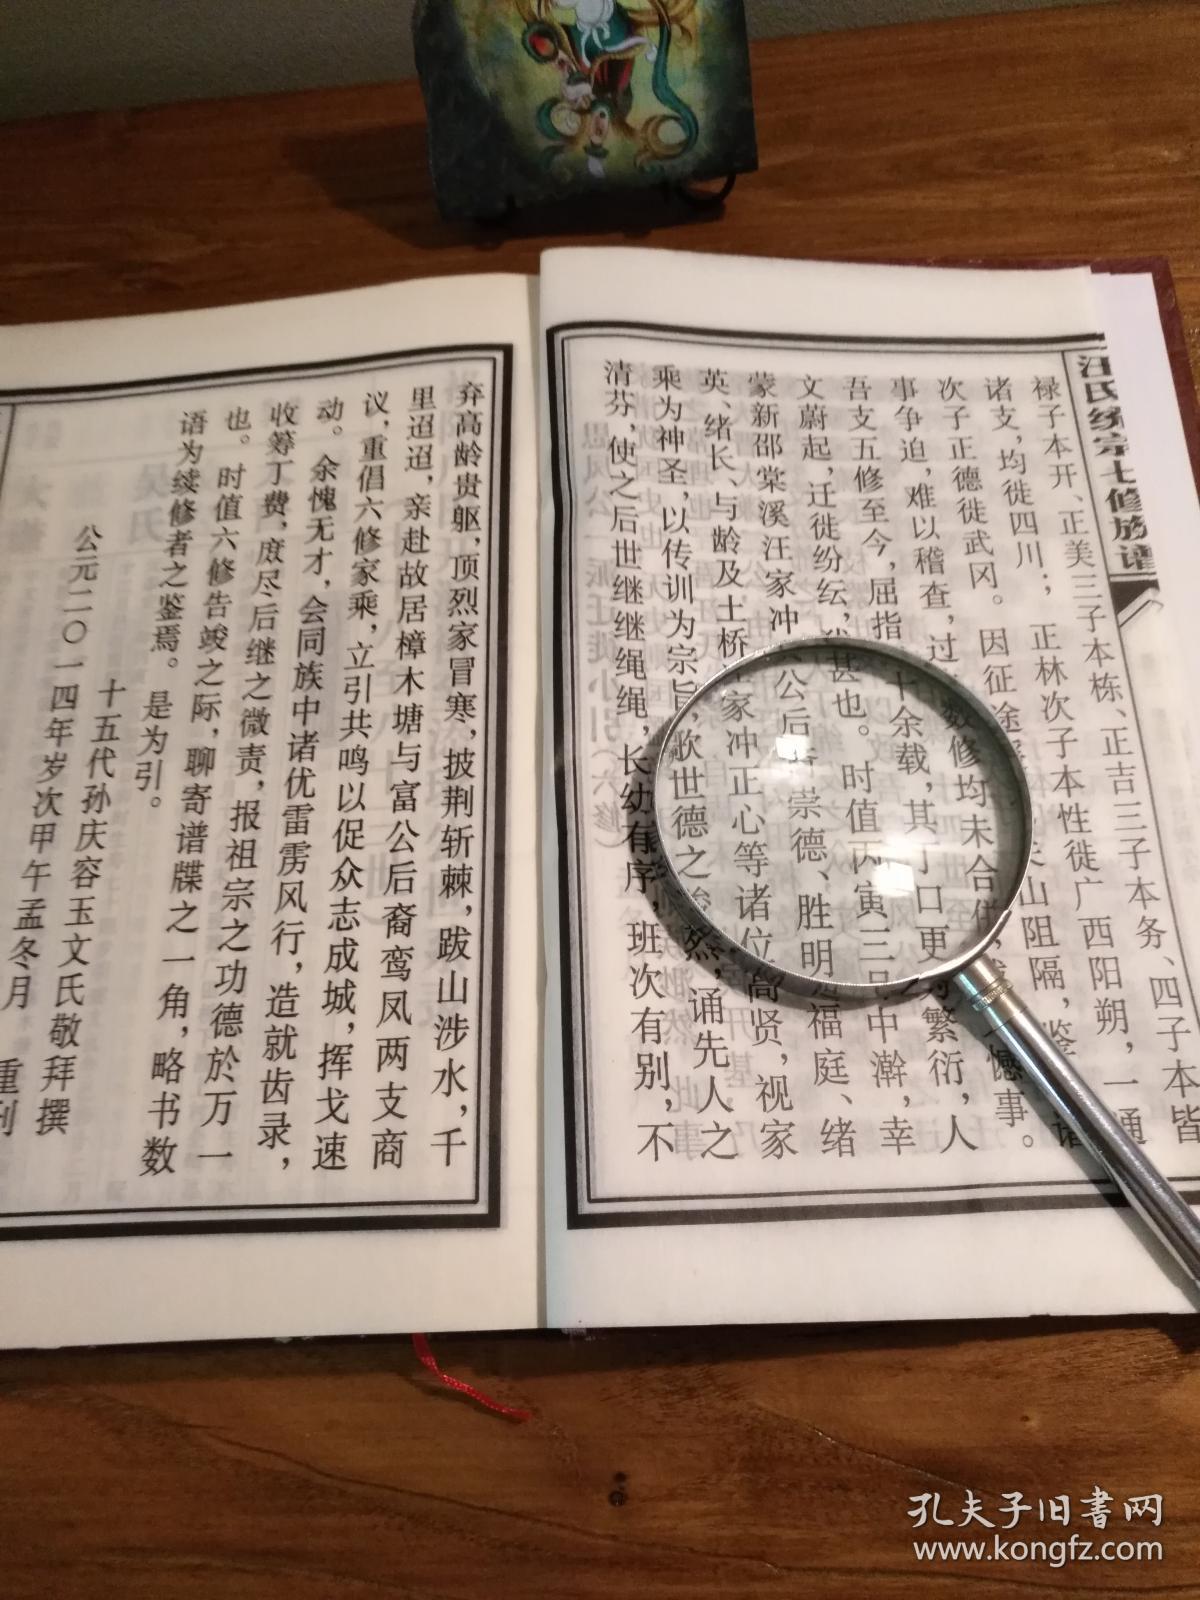 汪氏统宗七修族谱
禄子本开、正美三子本栋、正吉三子本务、四子本皆
诸支，均徙四川；正林次子本性徙广西阳朔，一通
次子正德徙武冈。因征途 山阻隔，鉴
事争迫，难以稽查，过 数修均未合 憾事。
吾支五修至今，屈指 十余载，其丁口更 繁衍，人
文蔚起，迁徙纷纭， 甚也。时值丙寅三 中澣，幸
蒙新邵棠溪汪家冲 公后 崇德、胜明 福庭、绪
英、绪长、与龄及土桥 家冲正心等诸位高贤，视家
乘为神圣，以传训为宗旨，歌世德之 ，诵先人之
清芬，使之后世继继绳绳，长幼有序，班次有别，不
弃高龄贵躯，顶烈家冒寒，披荆斩棘，跋山涉水，千
里迢迢，亲赴故居樟木塘与富公后裔鸾凤两支商
议，重倡六修家乘，立引共鸣以促众志成城，挥戈速
动。余愧无才，会同族中诸优雷雳风行，造就齿录，
收筹丁费，庶尽后继之微责，报祖宗之功德於万一
也。时值六修告竣之际，聊寄谱牒之一角，略书数
语为续修者之鉴焉。是为引。
十五代孙庆容玉文氏敬拜撰
公元二〇一四年岁次甲午孟冬月 重刊
孔夫子旧书网
www.kongfz.com